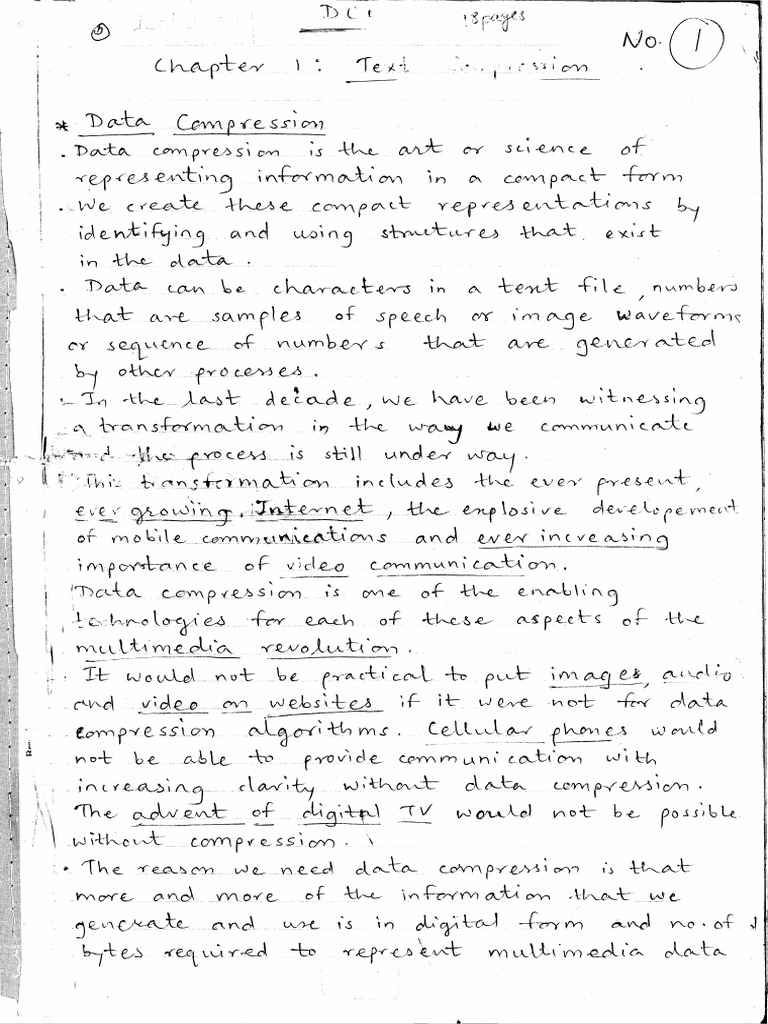 DC1 18 pages
No. 1
Chapter 1: Text Compression
* Data Compression
. Data compression is the art or science of
representing information in a compact form
. We create these compact representations by
identifying and using structures that exist
in the data.
. Data can be characters in a text file, numbers
that are samples of speech or image waveforms
or sequence of numbers that are generated
by other processes.
. In the last decade, we have been witnessing
a transformation in the way we communicate
and the process is still under way.
This transformation includes the ever present,
ever growing, Internet, the explosive developement
of mobile communications and ever increasing
importance of video communication.
Data compression is one of the enabling
technologies for each of these aspects of the
multimedia revolution.
. It would not be practical to put images, audio
and video on websites if it were not for data
compression algorithms. Cellular phones would
not be able to provide communication with
increasing clarity without data compression.
The advent of digital TV would not be possible
without compression.
. The reason we need data compression is that
more and more of the information that we
generate and use is in digital form and no. of
bytes required to represent multimedia data